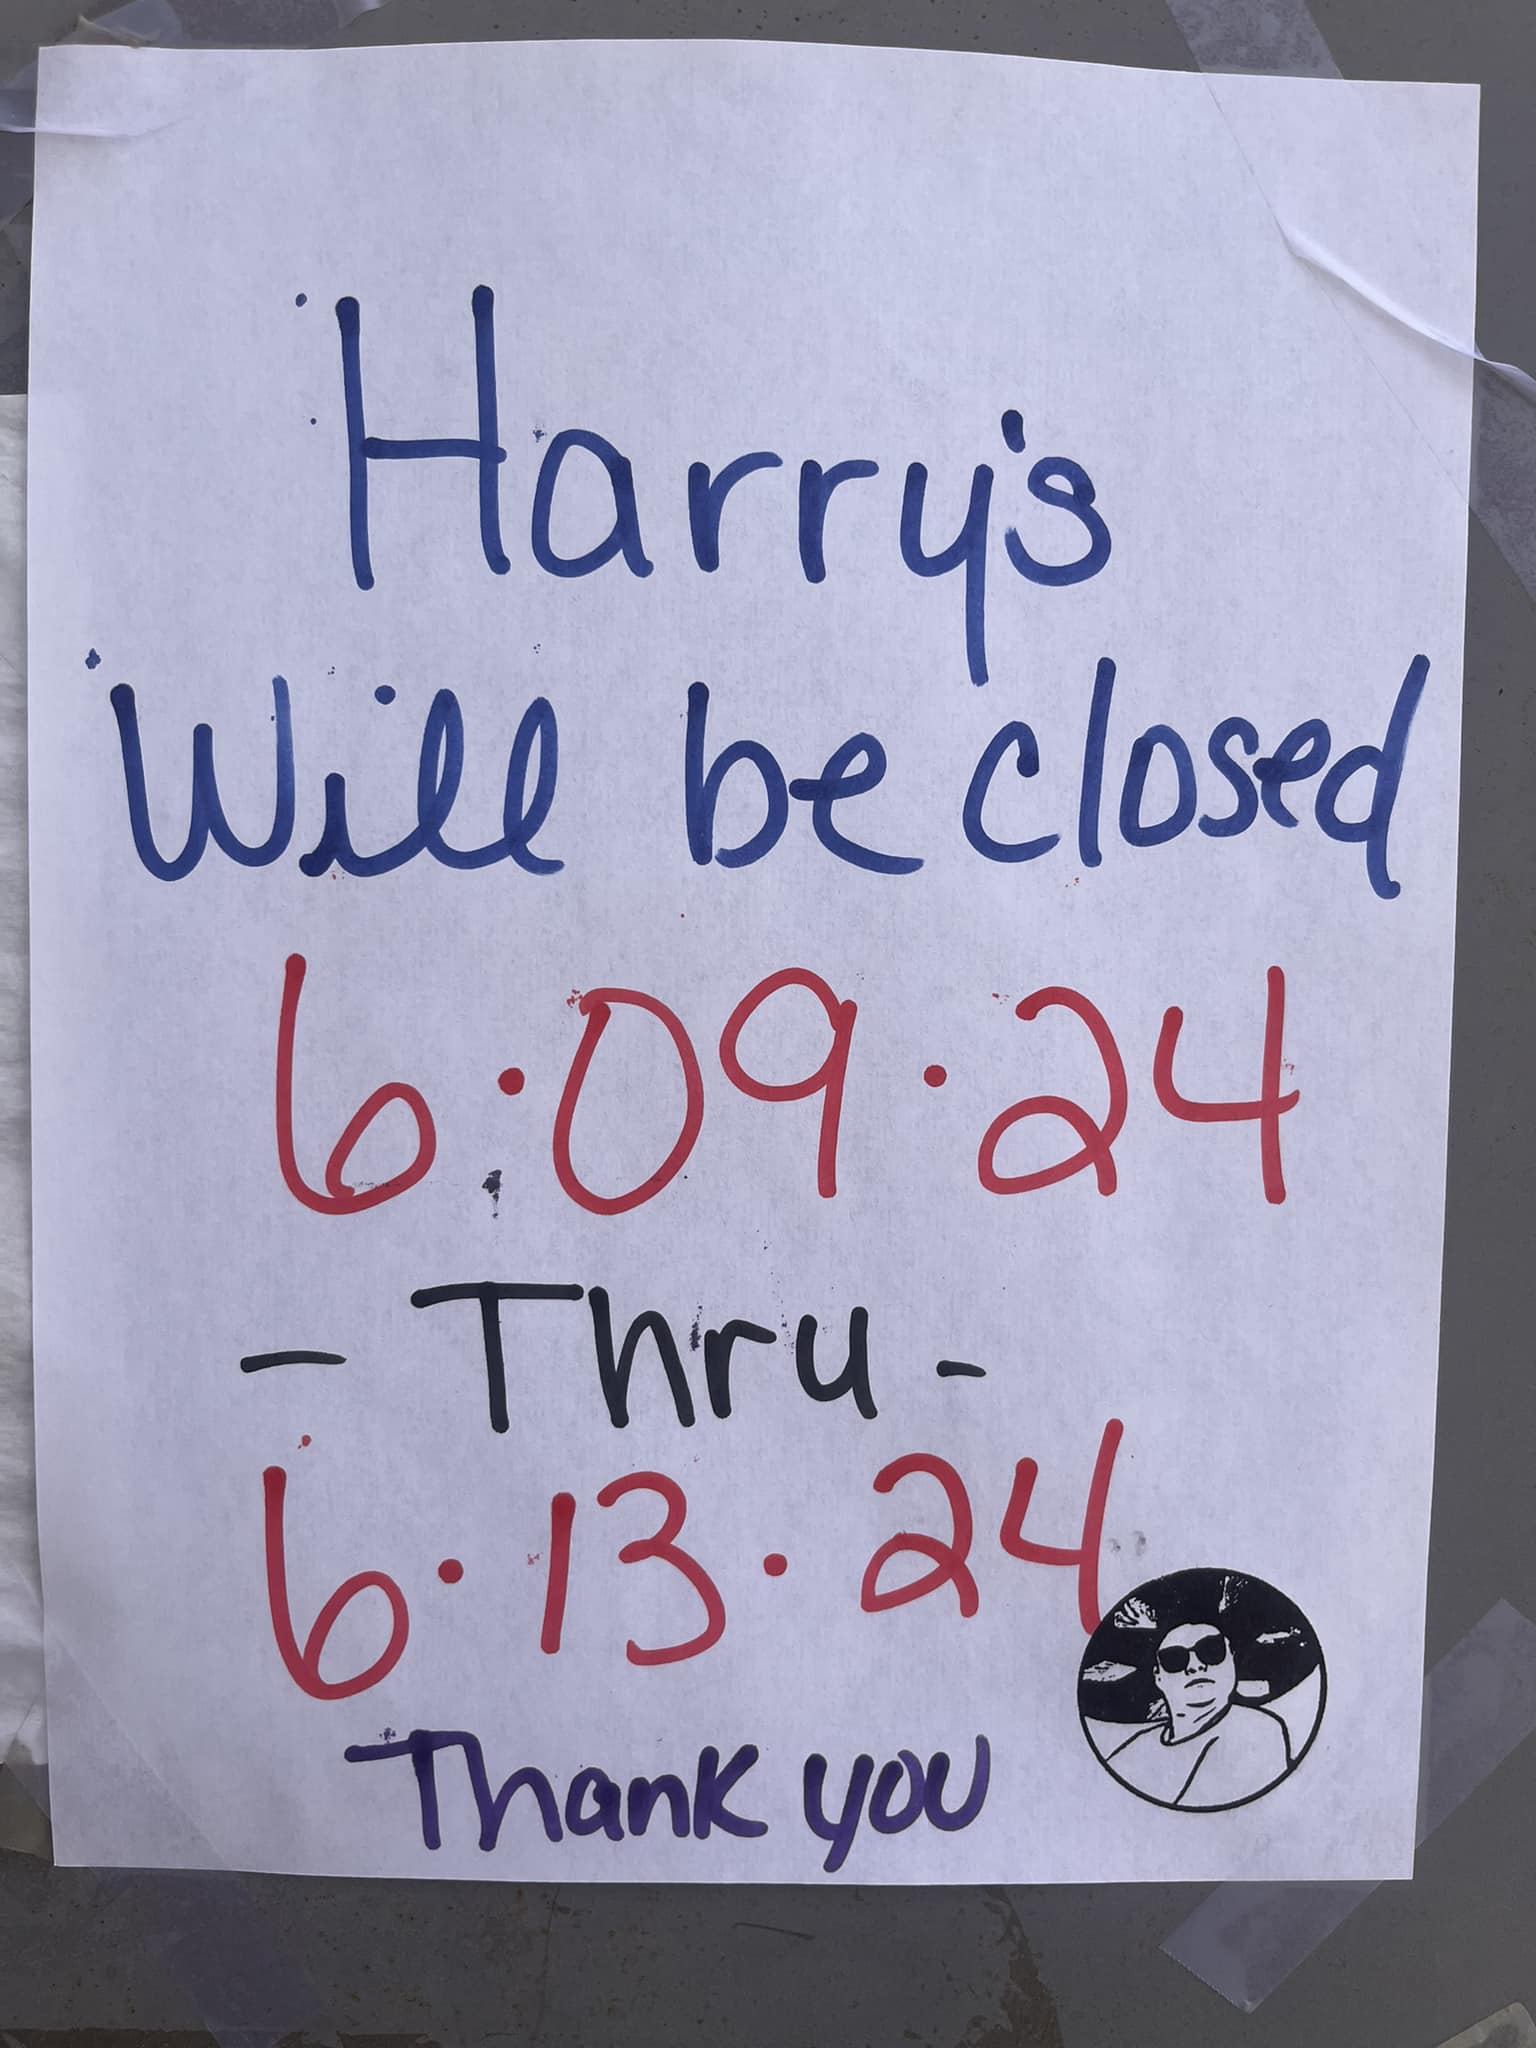 Harry's
Will be closed
6·09·24
- Thru -
6·13·24
Thank you